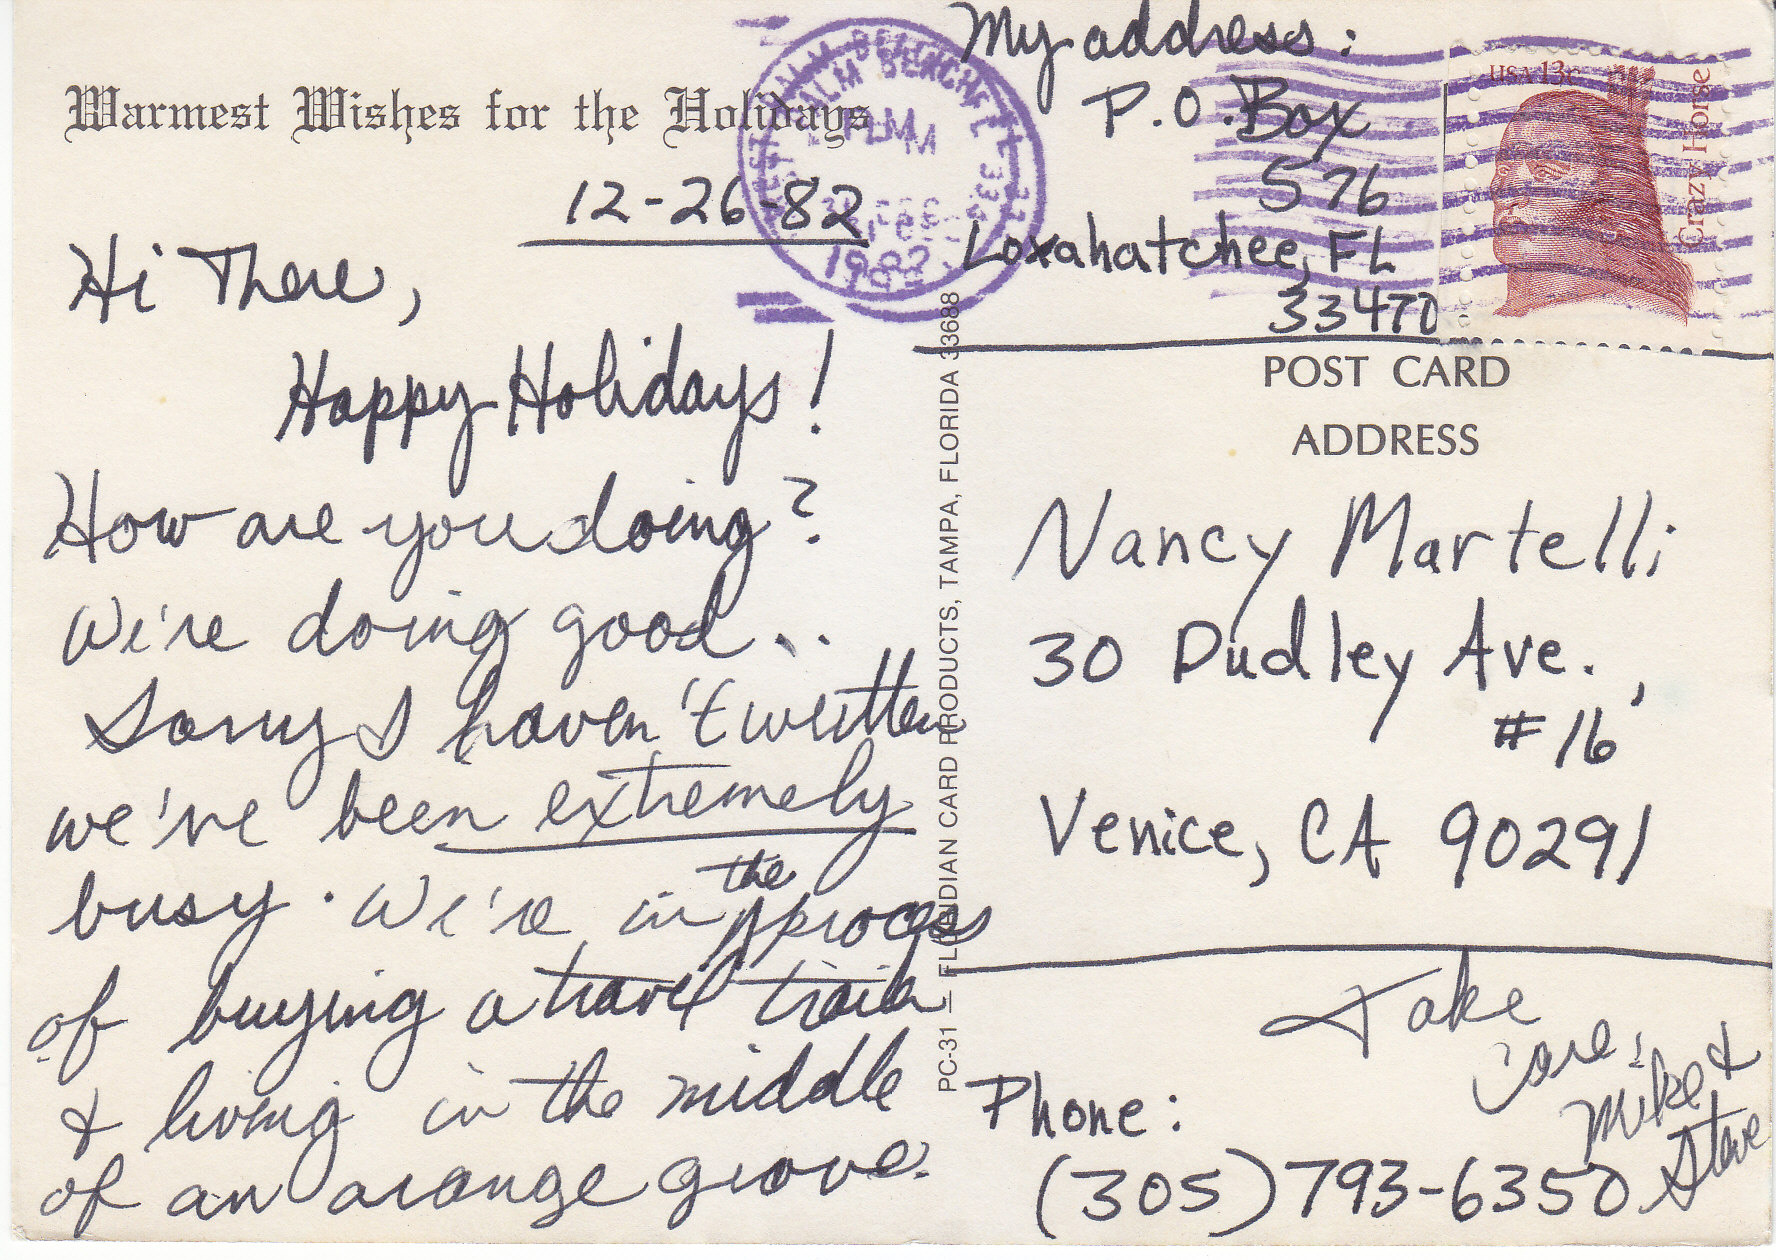 Warmest Wishes for the Holidays
12-26-82
Hi There,
Happy Holidays!
How are you doing?
We're doing good..
Sorry I haven't written
we've been extremely
busy. We're in the process
of buying a travel trailer
& living in the middle
of an orange grove.
WEST PALM BEACH FL
PM
1982
My address:
P.O. Box
576
Loxahatchee, FL
33470
USA 13c
Crazy Horse
POST CARD
ADDRESS
Nancy Martelli
30 Dudley Ave.,
#16
Venice, CA 90291
PC-31 – FLORIDIAN CARD PRODUCTS, TAMPA, FLORIDA 33688
Take
Care,
Mike &
Steve
Phone:
(305) 793-6350